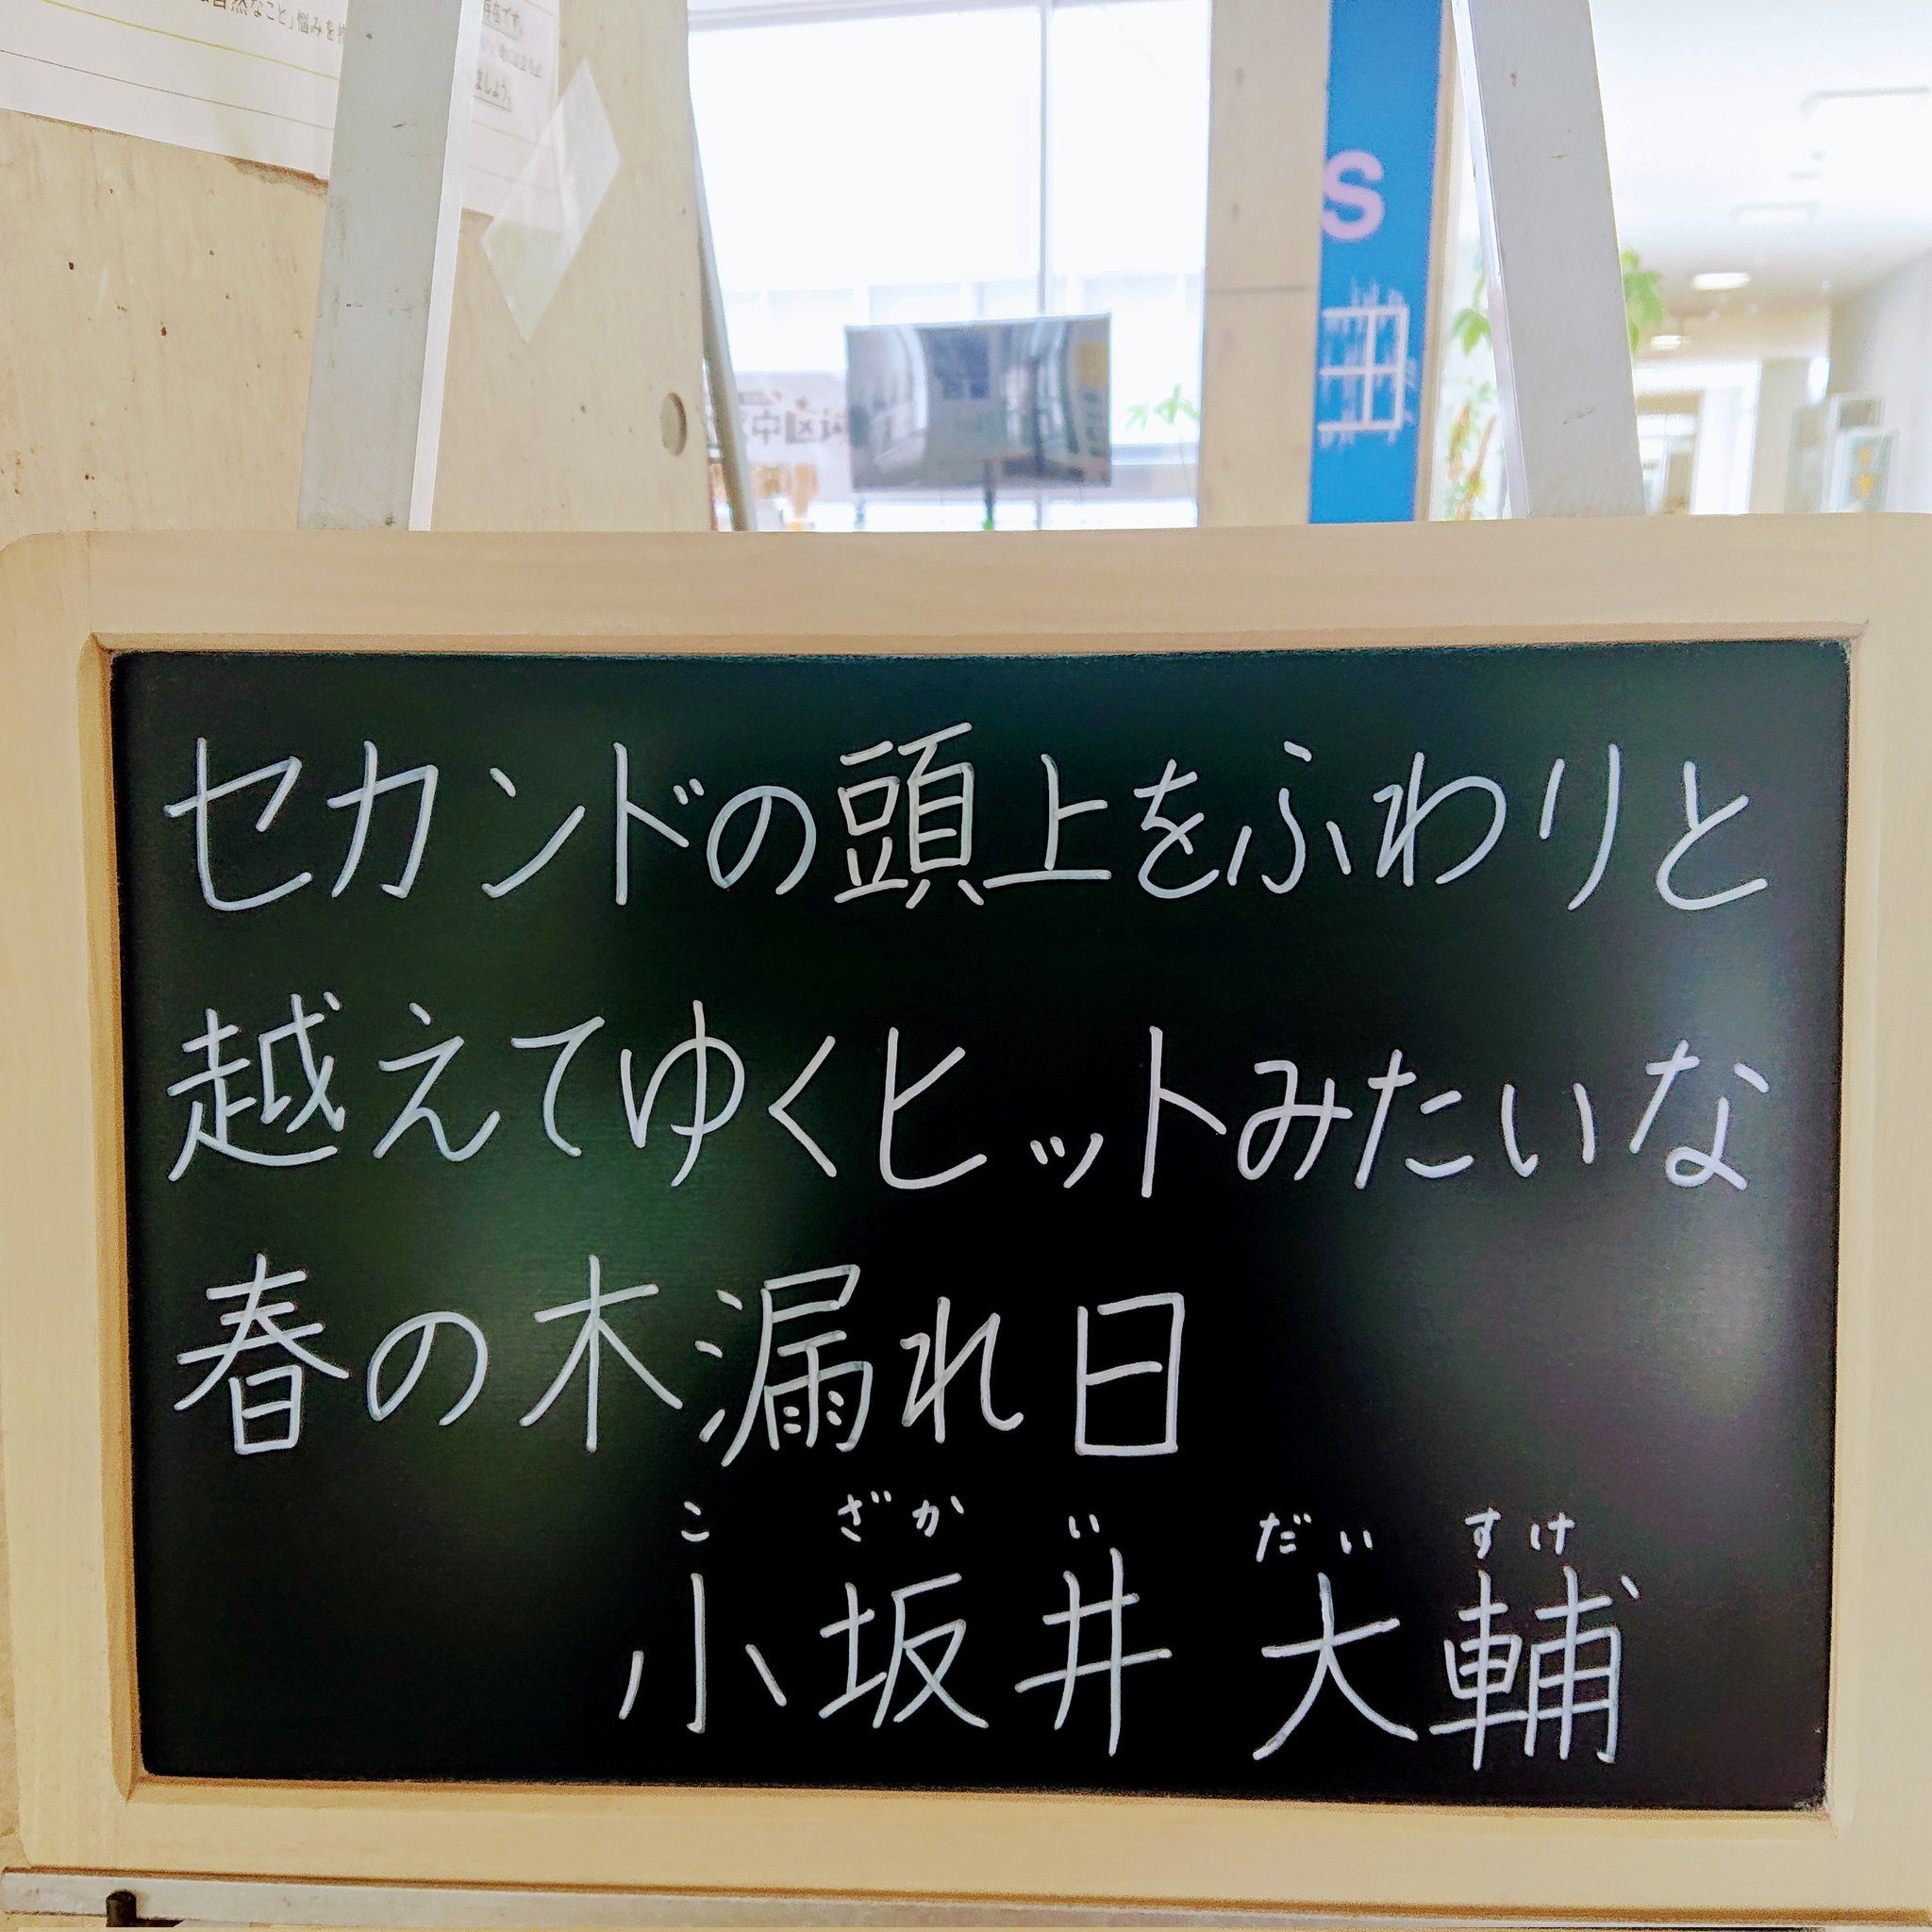 自然なこと」悩みを
存在です。
ましょう。
S
セカンドの頭上をふわりと
越えてゆくヒットみたいな
春の木漏れ日
こ ざか い だい すけ
小坂井 大輔